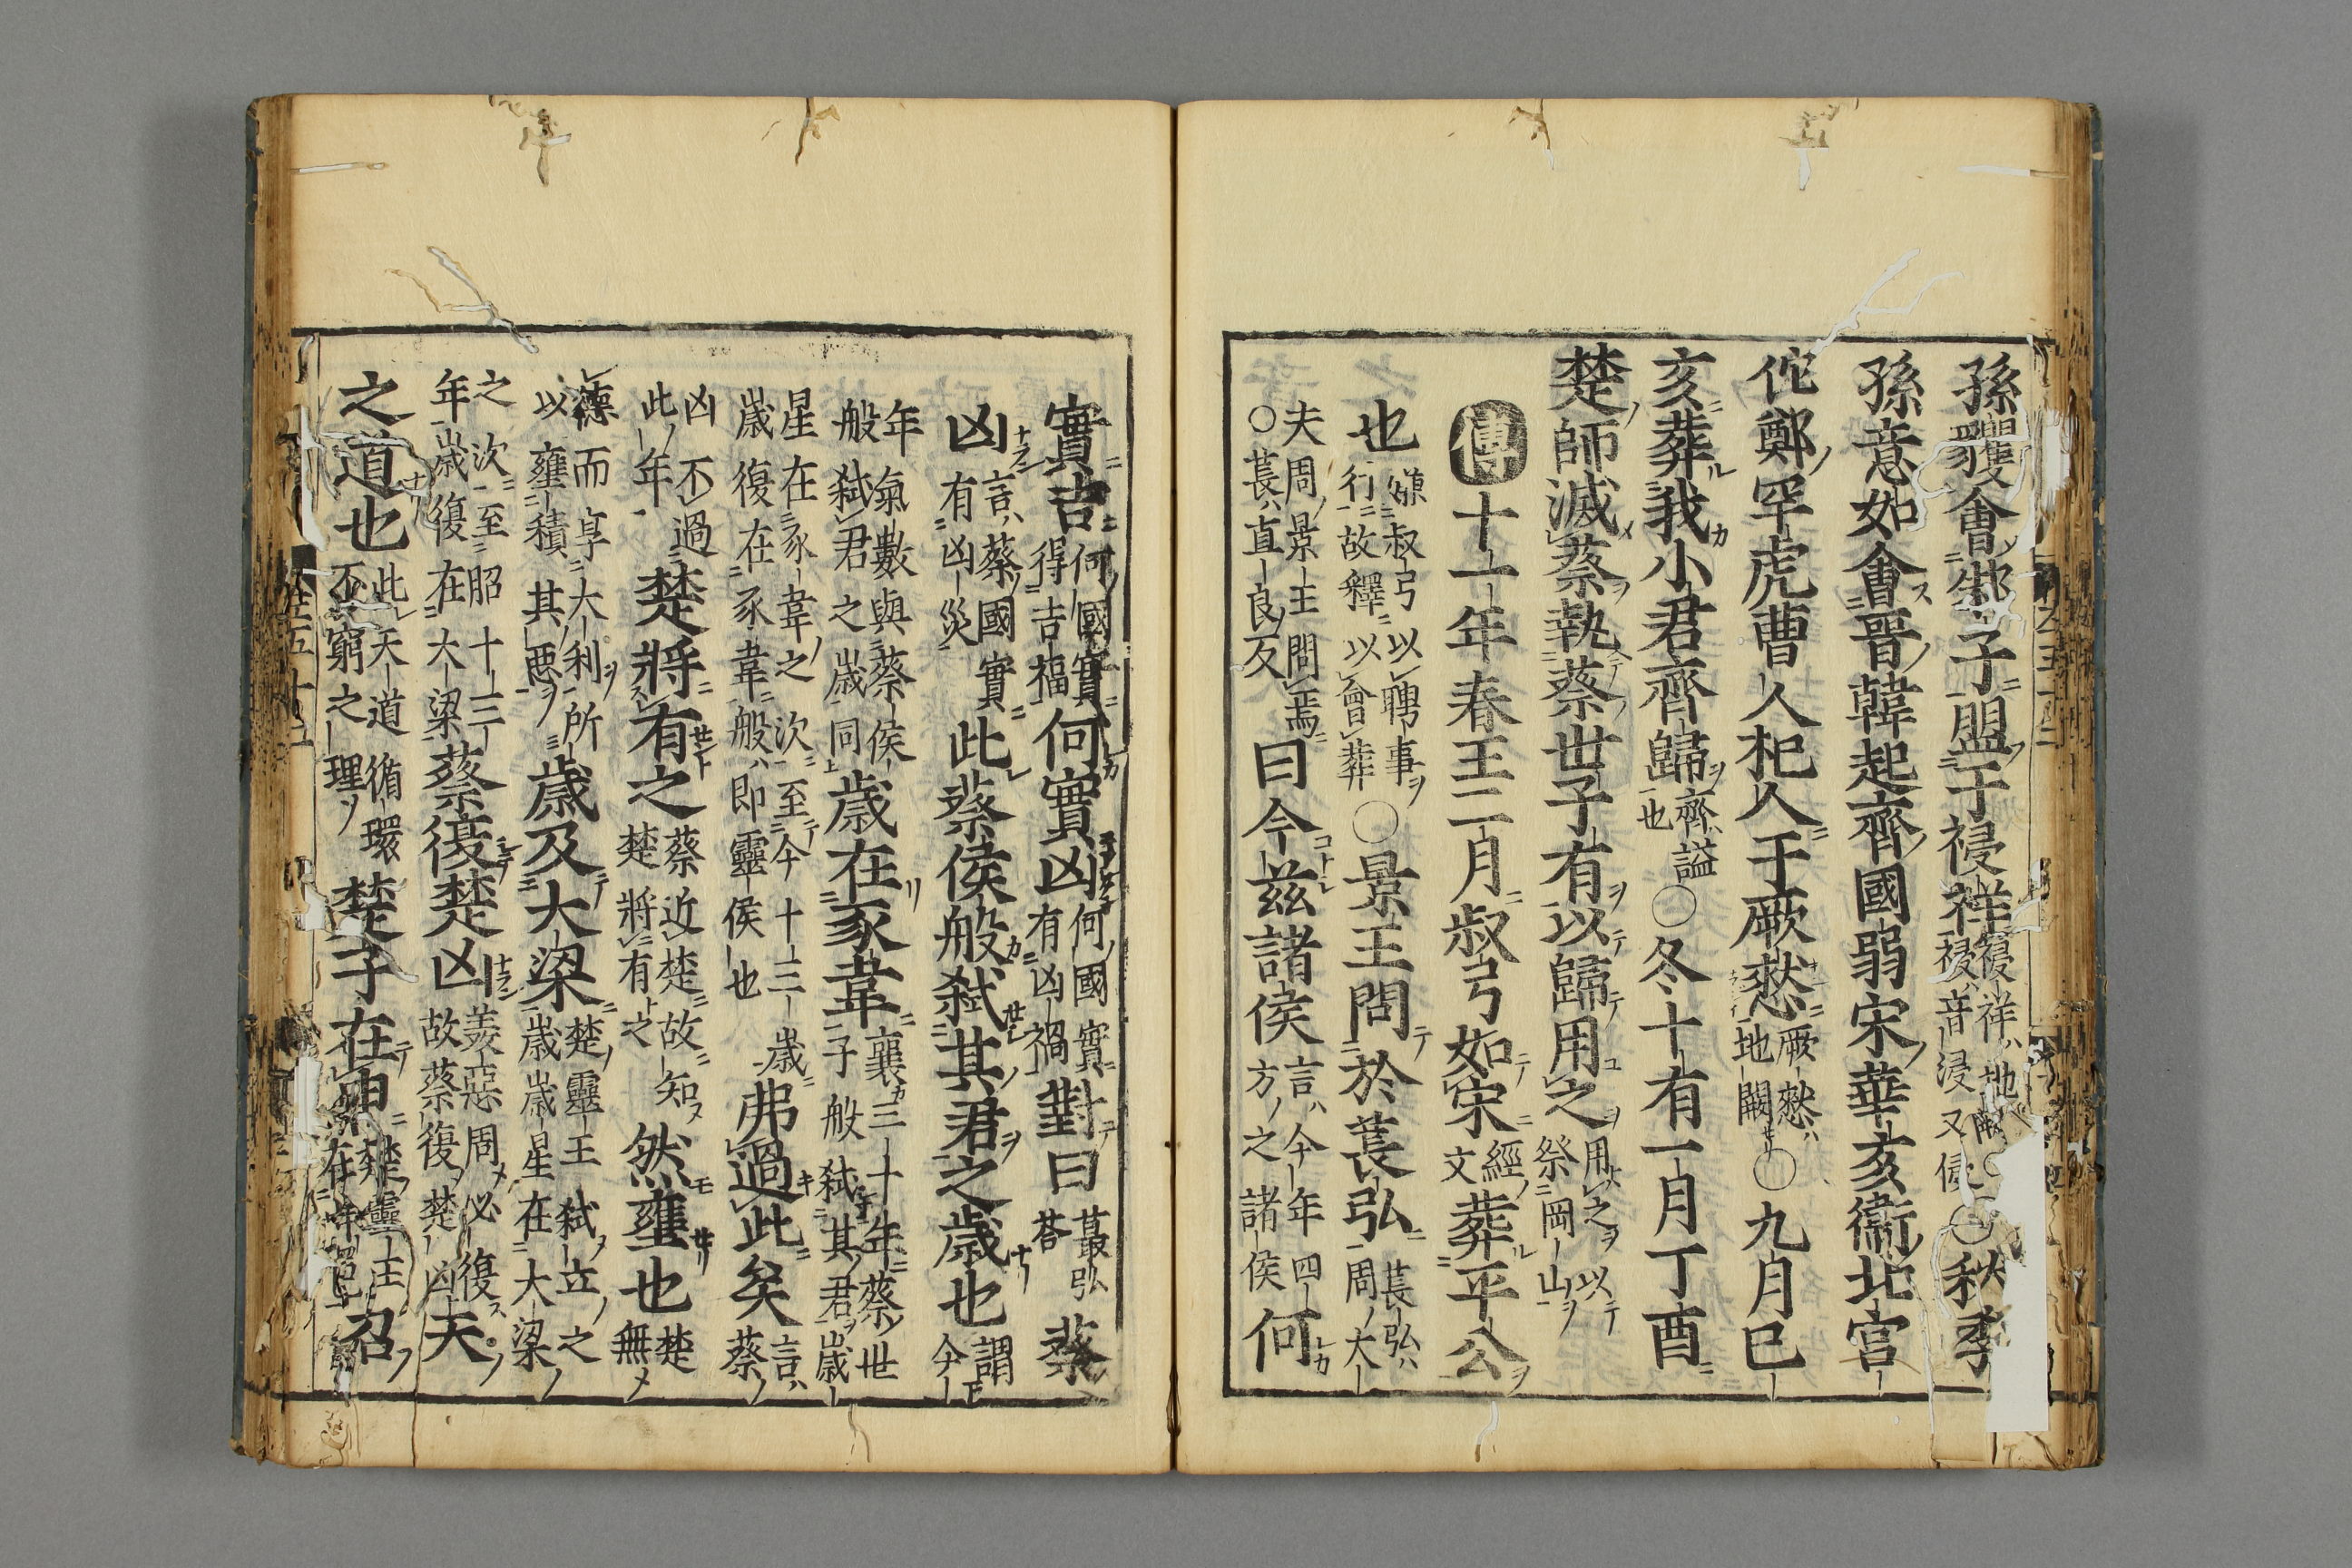 孫貜會邾子盟于祲祥祲祥地闕祲音浸又侵○秋季
孫意如會晉韓起齊國弱宋華亥衞北宮
佗鄭罕虎曹人杞人于厥憖厥憖地闕○九月巳
亥葬我小君齊歸齊謚也○冬十有一月丁酉
楚師滅蔡執蔡世子有以歸用之用之以祭岡山
傳十一年春王二月叔弓如宋經文葬平公
也嫌叔弓以聘事行故釋以會葬○景王問於萇弘萇弘周大
夫周景王問焉○萇直良反曰今茲諸侯言今年四方之諸侯何
實吉何國實得吉福何實凶何國實有凶禍對曰萇弘荅蔡
凶言蔡國實有凶災此蔡侯般弒其君之歲也謂今
年氣數與蔡侯般弒君之歲同歲在豕韋襄三十年蔡世子般弒其君歲
星在豕韋之次至今十三歲歲復在豕韋般即靈侯也弗過此矣言蔡
凶不過此年楚將有之蔡近楚故知楚將有之然壅也楚無
德而享大利所以壅積其惡歲及大梁楚靈王弒立之歲歲星在大梁
之次至昭十三年歲復在大梁蔡復楚凶美惡周必復故蔡復楚凶天
之道也此天道循環不窮之理楚子在申楚靈王在申召